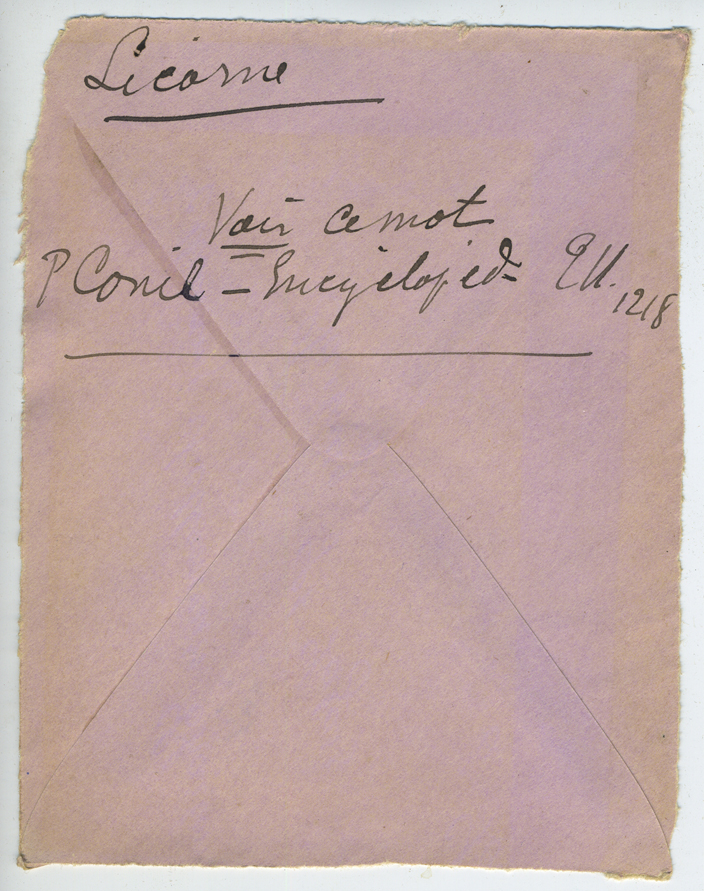 Licorne
Voir ce mot
P Conil = Encycloped-
1218